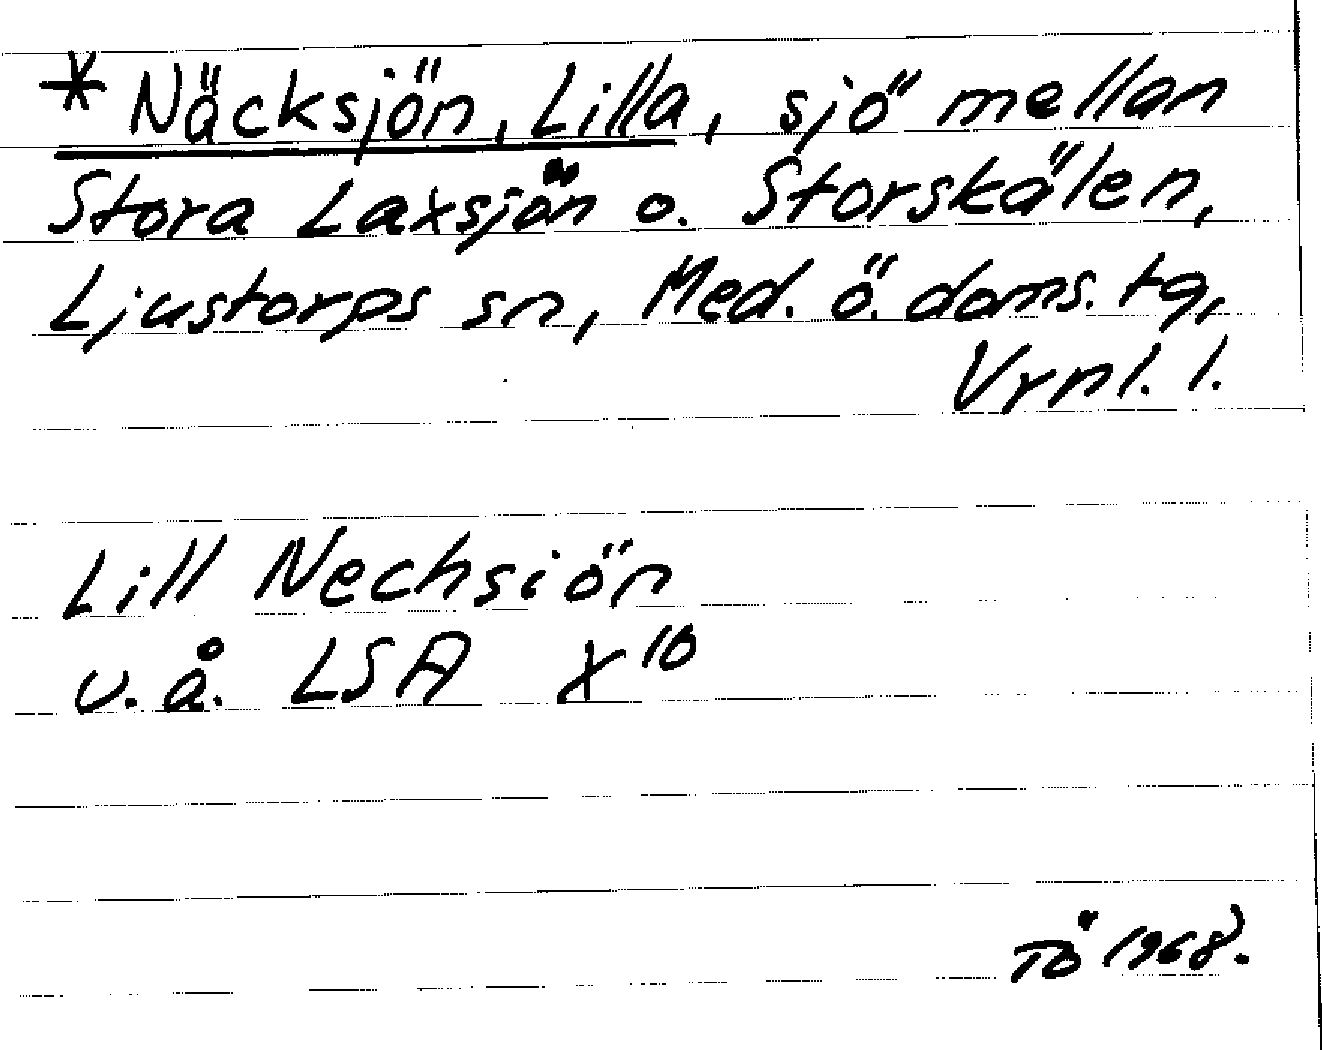 * Näcksjön, Lilla, sjö mellan
Stora Laxsjön o. Storskälen,
Ljustorps sn, Med. ö. doms. tg,
Vrnl. l.
Lill Nechsiön
u. å. LSA X 10
TÖ 1968.